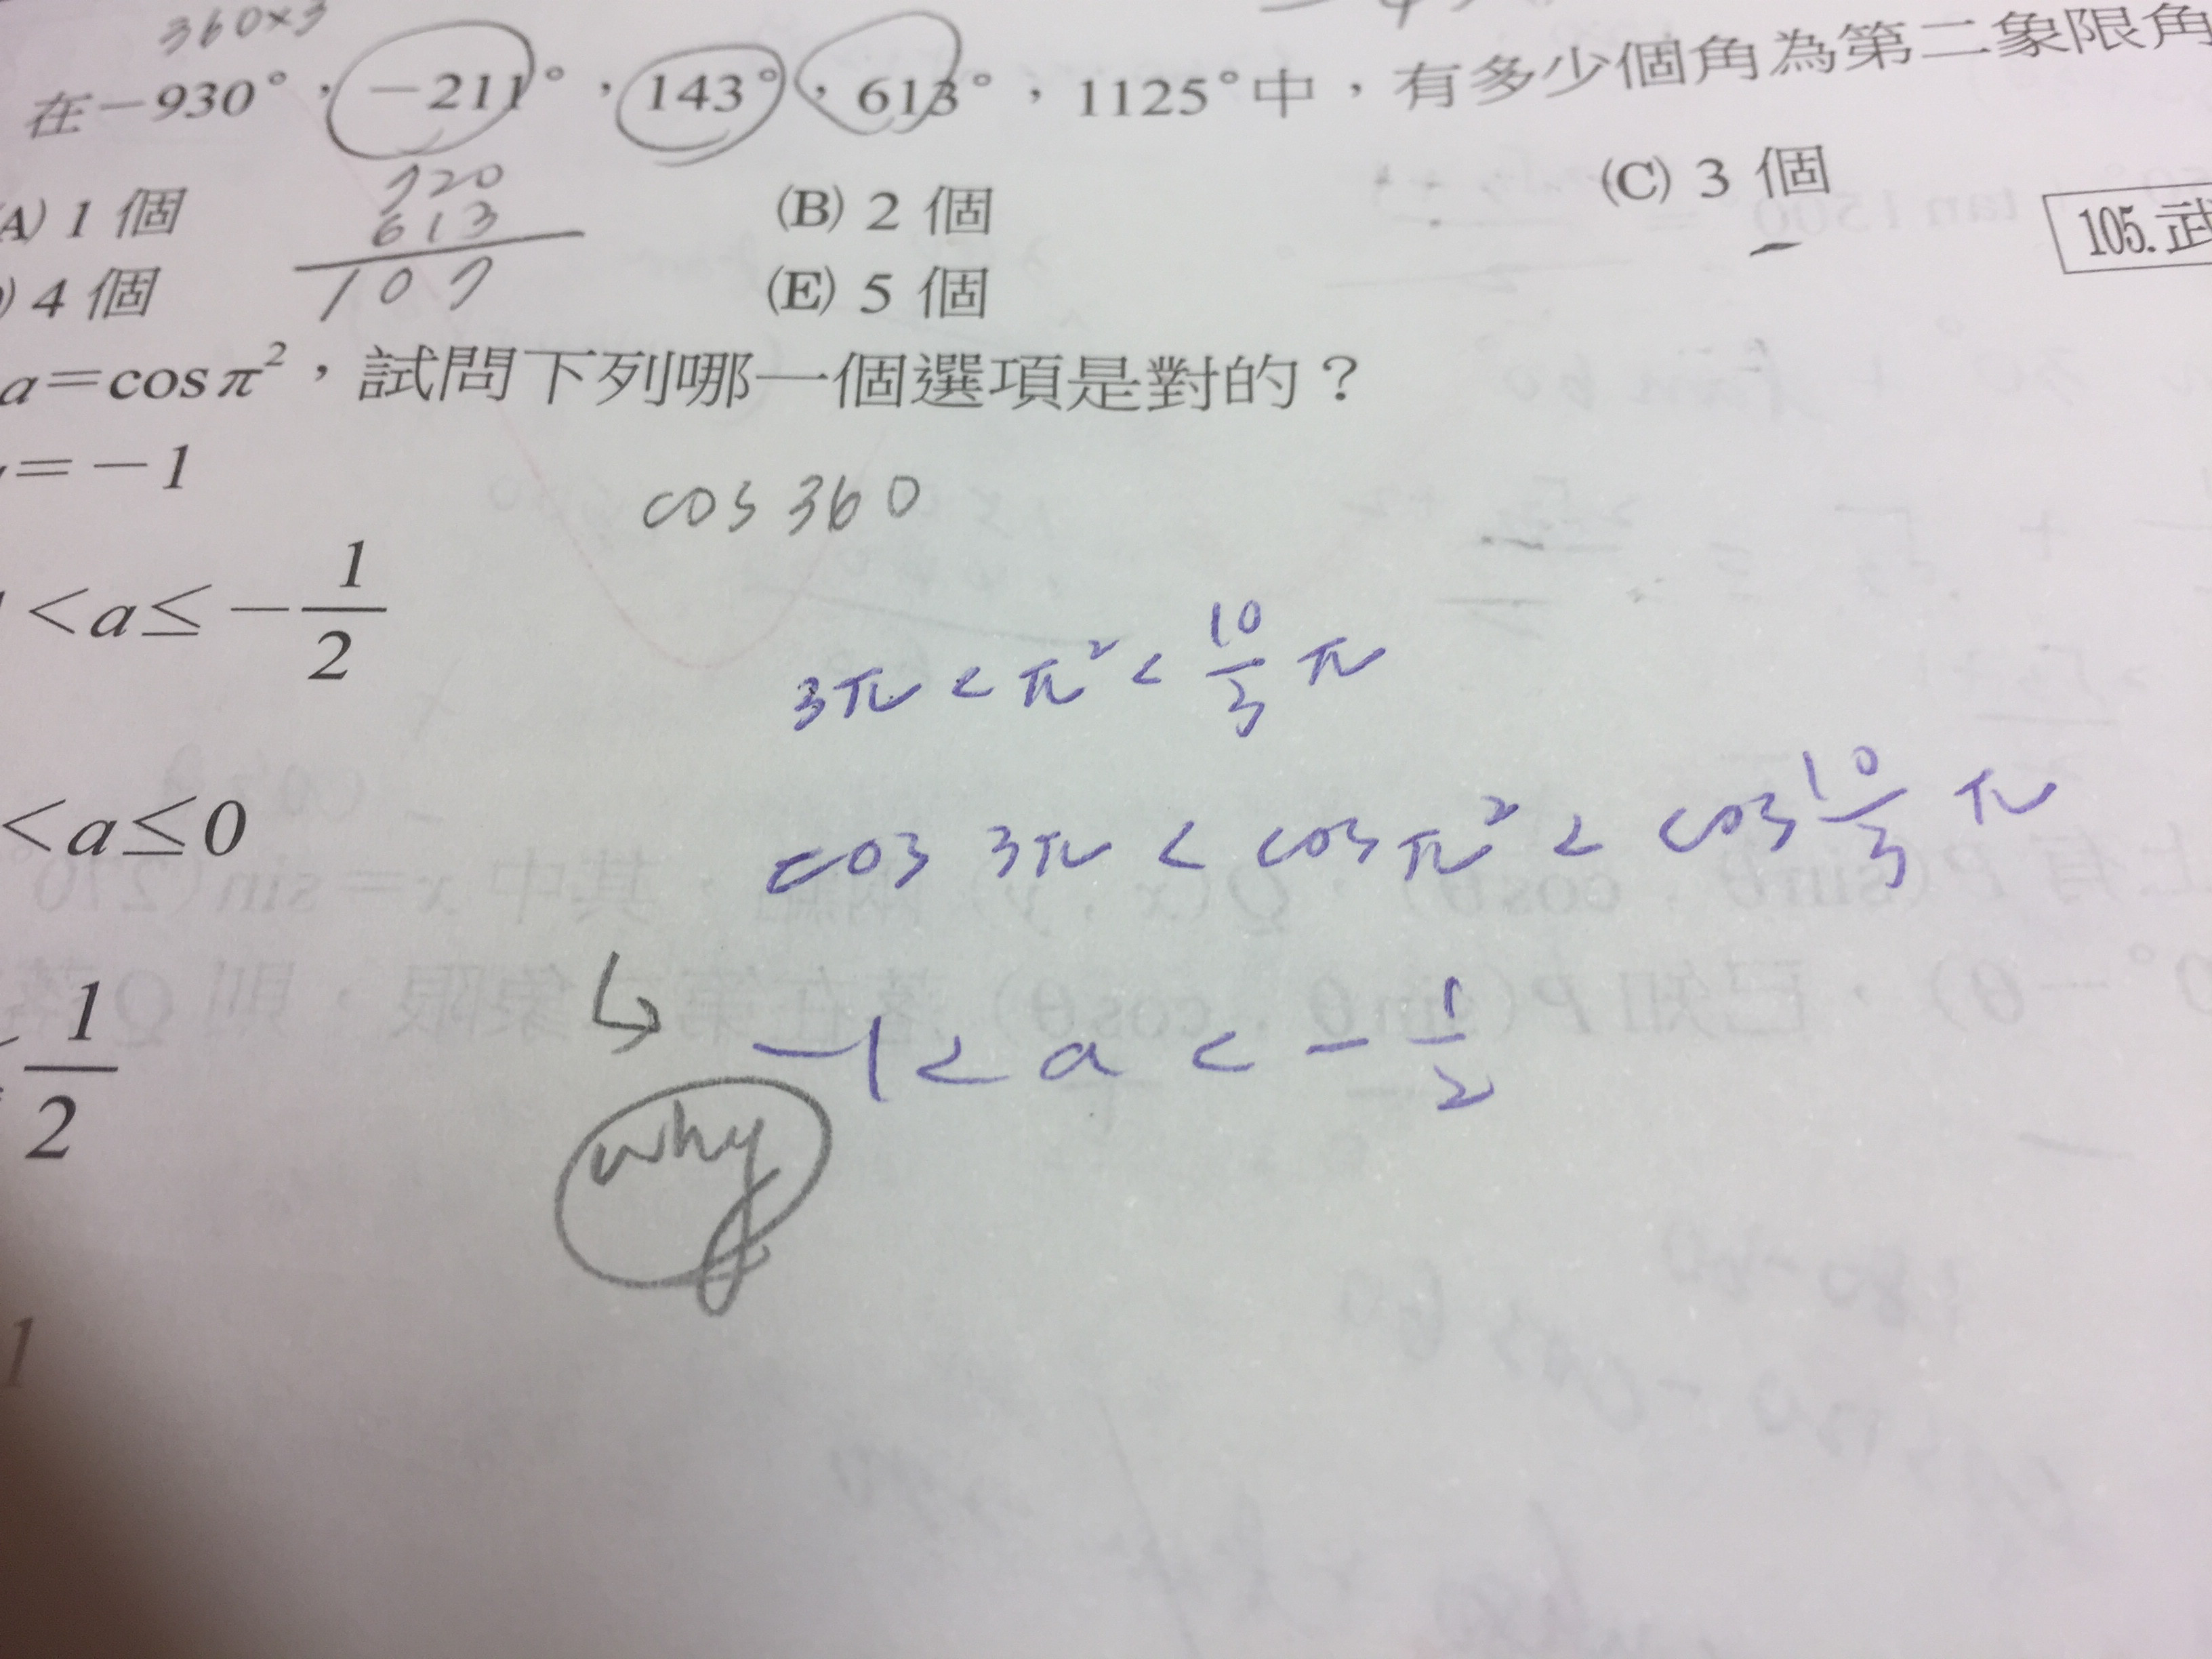 360×3
在−930°，−211°，143°，613°，1125°中，有多少個角為第二象限角
(A) 1 個
(B) 2 個
(C) 3 個
105.武
720
613
107
) 4 個
(E) 5 個
a=cosπ²，試問下列哪一個選項是對的？
=−1
cos 360
<a≤−1/2
3π < π² < 10/3 π
<a≤0
cos 3π < cos π² < cos 10/3 π
1/2
−1 < a < −1/2
why
1